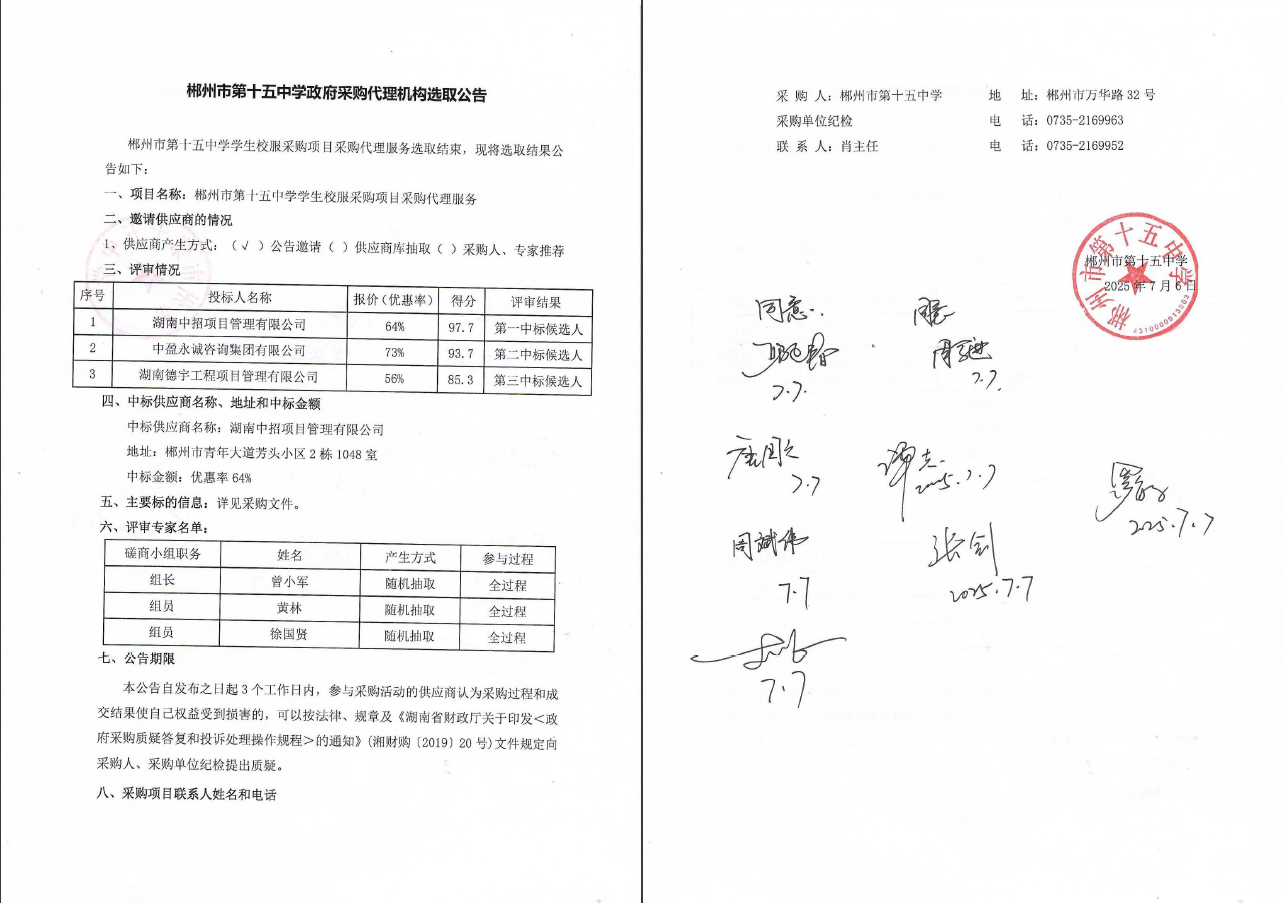 郴州市第十五中学政府采购代理机构选取公告
郴州市第十五中学学生校服采购项目采购代理服务选取结束，现将选取结果公
告如下：
一、项目名称：郴州市第十五中学学生校服采购项目采购代理服务
二、邀请供应商的情况
1、供应商产生方式：（√）公告邀请（ ）供应商库抽取（ ）采购人、专家推荐
三、评审情况
序号 投标人名称 报价（优惠率） 得分 评审结果
1 湖南中招项目管理有限公司 64% 97.7 第一中标候选人
2 中盈永诚咨询集团有限公司 73% 93.7 第二中标候选人
3 湖南德宇工程项目管理有限公司 56% 85.3 第三中标候选人
四、中标供应商名称、地址和中标金额
中标供应商名称：湖南中招项目管理有限公司
地址：郴州市青年大道芳头小区2栋1048室
中标金额：优惠率64%
五、主要标的信息：详见采购文件。
六、评审专家名单：
磋商小组职务 姓名 产生方式 参与过程
组长 曾小军 随机抽取 全过程
组员 黄林 随机抽取 全过程
组员 徐国贤 随机抽取 全过程
七、公告期限
本公告自发布之日起3个工作日内，参与采购活动的供应商认为采购过程和成
交结果使自己权益受到损害的，可以按法律、规章及《湖南省财政厅关于印发<政
府采购质疑答复和投诉处理操作规程>的通知》(湘财购〔2019〕20号)文件规定向
采购人、采购单位纪检提出质疑。
八、采购项目联系人姓名和电话
采 购 人：郴州市第十五中学 地 址：郴州市万华路32号
采购单位纪检 电 话：0735-2169963
联 系 人：肖主任 电 话：0735-2169952
郴州市第十五中学
郴州市第十五中学
2025年7月6日
同意.
7.7.
7.7.
7.7
2025.7.7
2025.7.7
周斌伟
张剑
7.7
2025.7.7
7.7